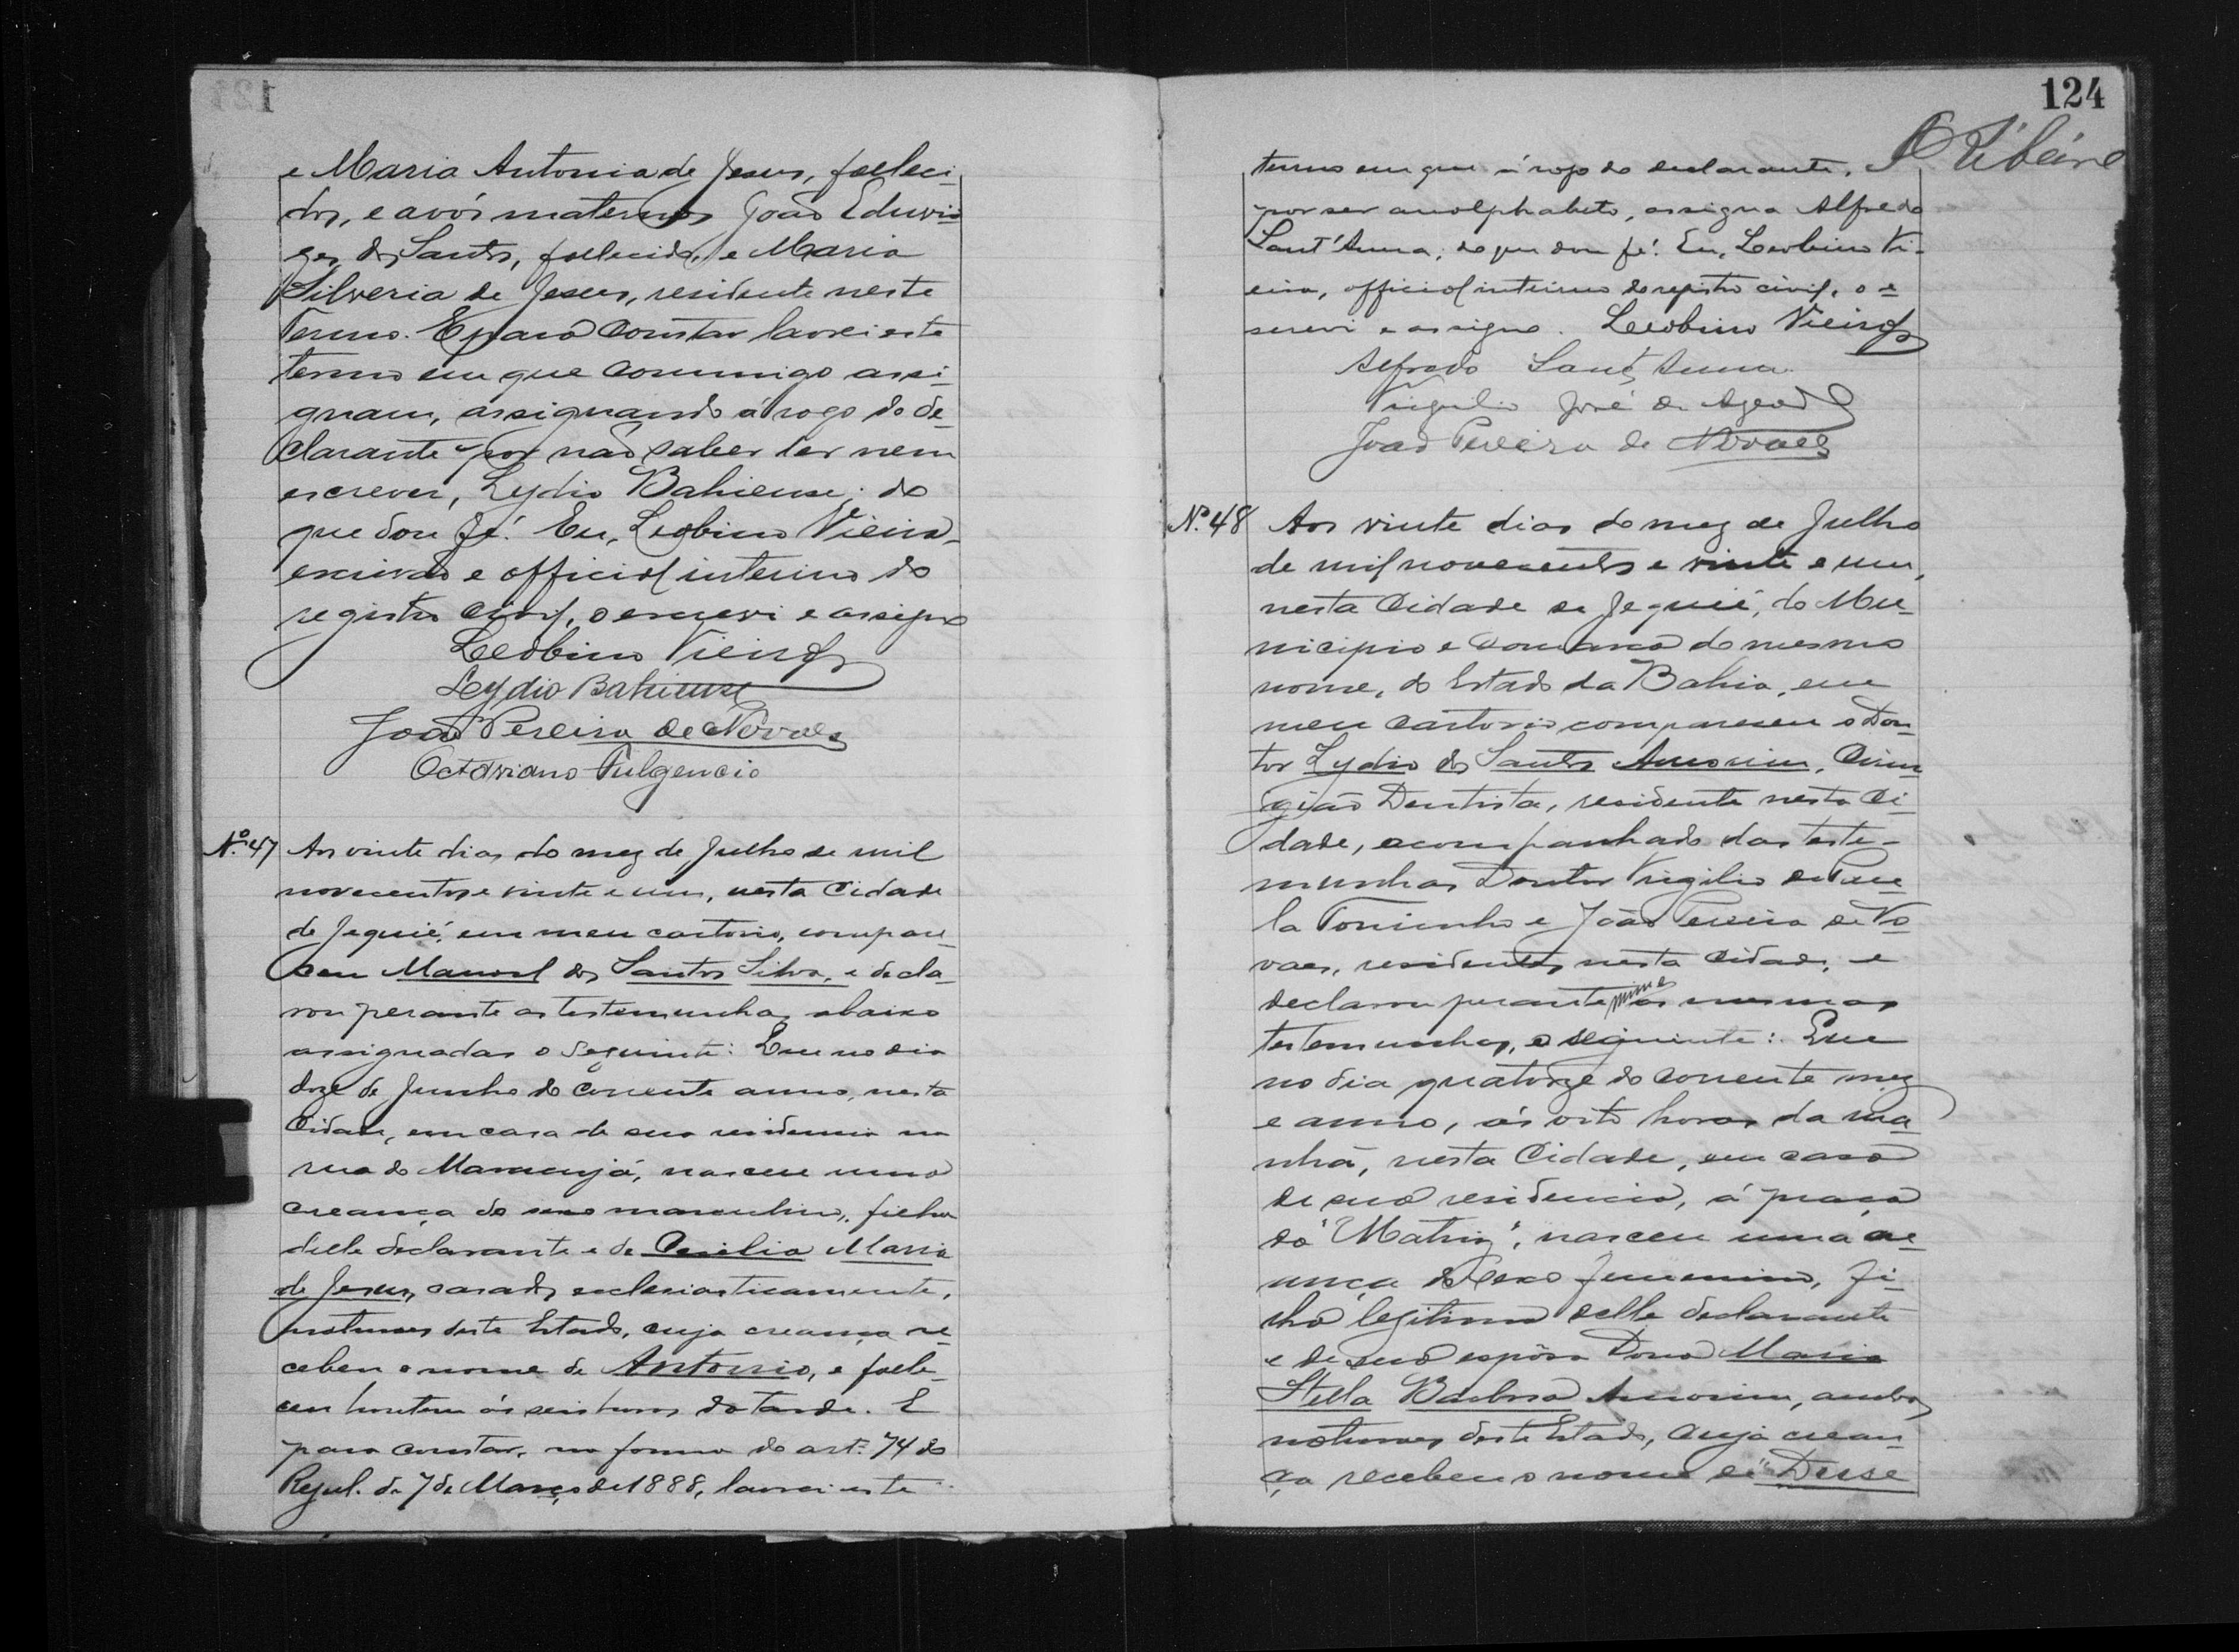 e Maria Antonia de Jesus, falleci-
dos, e avós maternos João Eduvir-
ges dos Santos, fallecido, e Maria
Silveria de Jesus, residente neste
Termo. E para constar lavrei este
termo em que commigo assi-
gnam, assignando á rogo do de-
clarante por não saber ler nem
escrever, Lydio Bahiense; do
que dou fé. Eu, Leobino Vieira,
escrivão e official interino do
registro civil, o escrevi e assigno
Leobino Vieira
Lydio Bahiense
João Pereira de Novaes
Octaviano Fulgencio
Nº 47 Aos vinte dias do mez de Julho de mil
novecentos e vinte e um, nesta Cidade
de Jequié, em meu cartorio, compare-
ceu Manoel dos Santos Silva, e decla-
rou perante as testemunhas abaixo
assignadas o seguinte: Que no dia
doze de Junho do corrente anno, nesta
Cidade, em casa de sua residencia na
rua do Maracujá, nasceu uma
creança do sexo masculino, filha
delle declarante e de Cecilia Maria
de Jesus, casados ecclesiasticamente,
naturaes deste Estado, cuja creança re-
cebeu o nome de Antonio, e falle-
ceu hontem ás seis horas da tarde. E
para constar, na forma do art. 74 do
Regul. de 7 de Março de 1888, lavrei este
124
termo em que á rogo do declarante,
por ser analphabeto, assigna Alfredo
Sant'Anna; do que dou fé. Eu, Leobino Vi-
eira, official interino do registro civil, o e-
screvi e assigno. Leobino Vieira
Alfredo Sant'Anna
Virgilio José de
João Pereira de Novaes
Nº 48 Aos vinte dias do mez de Julho
de mil novecentos e vinte e um,
nesta Cidade de Jequié, do Mu-
nicipio e Comarca do mesmo
nome, do Estado da Bahia, em
meu cartorio compareceu o Dou-
tor Lydio dos Santos Amorim, Cirur-
gião Dentista, residente nesta Ci-
dade, acompanhado das teste-
munhas Doutor Virgilio de Pau-
la Tourinho e João Pereira de No-
vaes, residentes nesta Cidade, e
declarou perante mim e as mesmas
testemunhas, o seguinte: Que
no dia quatorze do corrente mez
e anno, ás oito horas da ma-
nhã, nesta Cidade, em casa
de sua residencia, á praça
da "Matriz", nasceu uma cre-
ança do sexo femenino, fi-
lha legitima delle declarante
e de sua espôsa Dona Maria
Stella Barbosa Amorim, ambos
naturaes deste Estado, cuja crean-
ça recebeu o nome de "Dirse